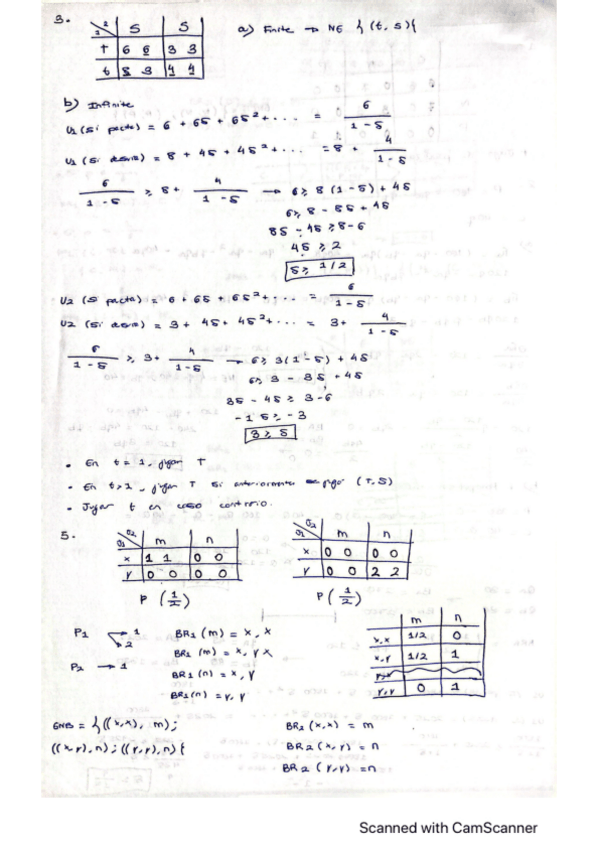 3.
2 S S
T 6 6 3 3
t 8 3 4 4
a) Finite → NE {(t, s){
b) Infinite
U1 (si pacta) = 6 + 6S + 6S² + ... = 6 / 1 - S
U1 (si desvia) = 8 + 4S + 4S² + ... = 8 + 4 / 1 - S
6 / 1 - S ≥ 8 + 4 / 1 - S → 6 ≥ 8 (1 - S) + 4S
6 ≥ 8 - 8S + 4S
8S - 4S ≥ 8 - 6
4S ≥ 2
S ≥ 1/2
U2 (si pacta) = 6 + 6S + 6S² + ... = 6 / 1 - S
U2 (si desvia) = 3 + 4S + 4S² + ... = 3 + 4 / 1 - S
6 / 1 - S ≥ 3 + 4 / 1 - S → 6 ≥ 3 (1 - S) + 4S
6 ≥ 3 - 3S + 4S
3S - 4S ≥ 3 - 6
- 1 S ≥ - 3
3 ≥ S
• En t = 1, jugar T
• En t > 1, jugar T si anteriormente se jugó (T, S)
• Jugar t en caso contrario.
5.
J2 J1 m n
x 1 1 0 0
y 0 0 0 0
P (1/2)
J2 J1 m n
x 0 0 0 0
y 0 0 2 2
P (1/2)
P1 → 1
→ 2
P2 → 1
BR1 (m) = x, x
BR1 (m) = x, y
BR1 (n) = x, y
BR1 (n) = y, y
m n
x,x 1/2 0
x,y 1/2 1
y,y 0 1
ENB = {((x,x), m);
((x,y), n); ((y,y), n){
BR2 (x,x) = m
BR2 (x,y) = n
BR2 (y,y) = n
Scanned with CamScanner